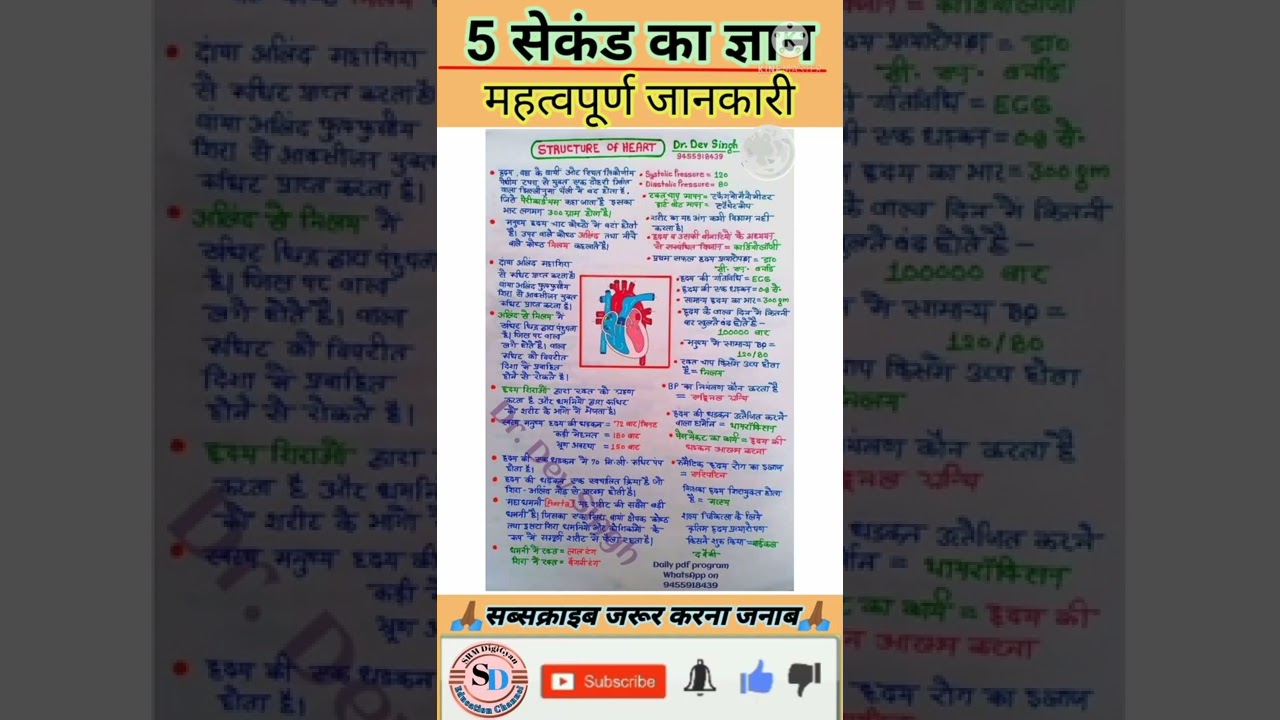 5 सेकंड का ज्ञान
KINEMASTER
महत्वपूर्ण जानकारी
STRUCTURE OF HEART
Dr. Dev Singh
9455918439
जिसे पेरीकार्डियम कहा जाता है इसका
भार लगभग 300 ग्राम होता है।
मनुष्य हृदय चार कोष्ठों में बंटा होता
है। ऊपर वाले कोष्ठ अलिंद तथा नीचे
वाले कोष्ठ निलय कहलाते हैं।
दांया अलिंद महाशिरा
से रूधिर प्राप्त करता है।
बांया अलिंद फुफ्फुसीय
शिरा से आक्सीजन युक्त
रूधिर प्राप्त करता है।
अलिंद से निलय में
रूधिर छिद्र द्वारा पहुंचता
है। जिस पर वाल्व
लगे होते हैं। वाल्व
रूधिर को विपरीत
दिशा में प्रवाहित
होने से रोकते है।
हृदय शिराओं द्वारा रक्त को ग्रहण
करता है और धमनियों द्वारा रूधिर
को शरीर के भागों में भेजता है।
स्वस्थ मनुष्य हृदय की धडकन = 72 बार/मिनट
कड़ी मेहनत = 180 बार
भ्रूण अवस्था = 150 बार
हृदय की एक धडकन में 70 मि.ली. रूधिर पंप
होता है।
हृदय की धडकन एक स्वचालित क्रिया है जो
शिरा-अलिंद नोड से प्रारम्भ होती है।
महाधमनी [Aorta] यह शरीर की सबसे बड़ी
धमनी है। जिसका एक सिरा बायां क्षेपक कोष्ठ
रूप में सम्पूर्ण शरीर में फैला रहता है।
धमनी में रक्त = लाल रंग
शिरा में रक्त = बैंगनी रंग
Systolic Pressure = 120
Diastolic Pressure = 80
शरीर का यह अंग कभी विश्राम नहीं
करता है।
हृदय व उसकी बीमारियों के अध्ययन
से सम्बंधित विज्ञान = कार्डियोलॉजी
प्रथम सफल हृदय प्रत्यारोपण = डा०
सी. एन. बर्नार्ड
हृदय की गतिविधि = ECG
हृदय की एक धडकन = 0.8 से.
सामान्य हृदय का भार = 300 gm
हृदय के वाल्व दिन में कितनी
बार खुलते बंद होते है -
100000 बार
मनुष्य में सामान्य BP =
120/80
रक्त चाप किसमें उच्च होता
है = निलय
BP का नियंत्रण कौन करता है
= एड्रिनल ग्रन्थि
हृदय की धडकन उत्तेजित करने
वाला हार्मोन = थायरॉक्सिन
पेस मेकर का कार्य = हृदय की
धडकन आरम्भ करना
रूमेटिक हृदय रोग का इलाज
= एस्पिरिन
किसका हृदय शिरायुक्त होता
है = मत्स्य
शल्य चिकित्सा के लिये
कृत्रिम हृदय प्रत्यारोपण
किसने शुरू किया = माईकल
द बैकी
Dr. Dev Singh
Daily pdf program
WhatsApp on
9455918439
🙏सब्सक्राइब जरूर करना जनाब🙏
SRM DigiGyan
SD
Education Channel
Subscribe